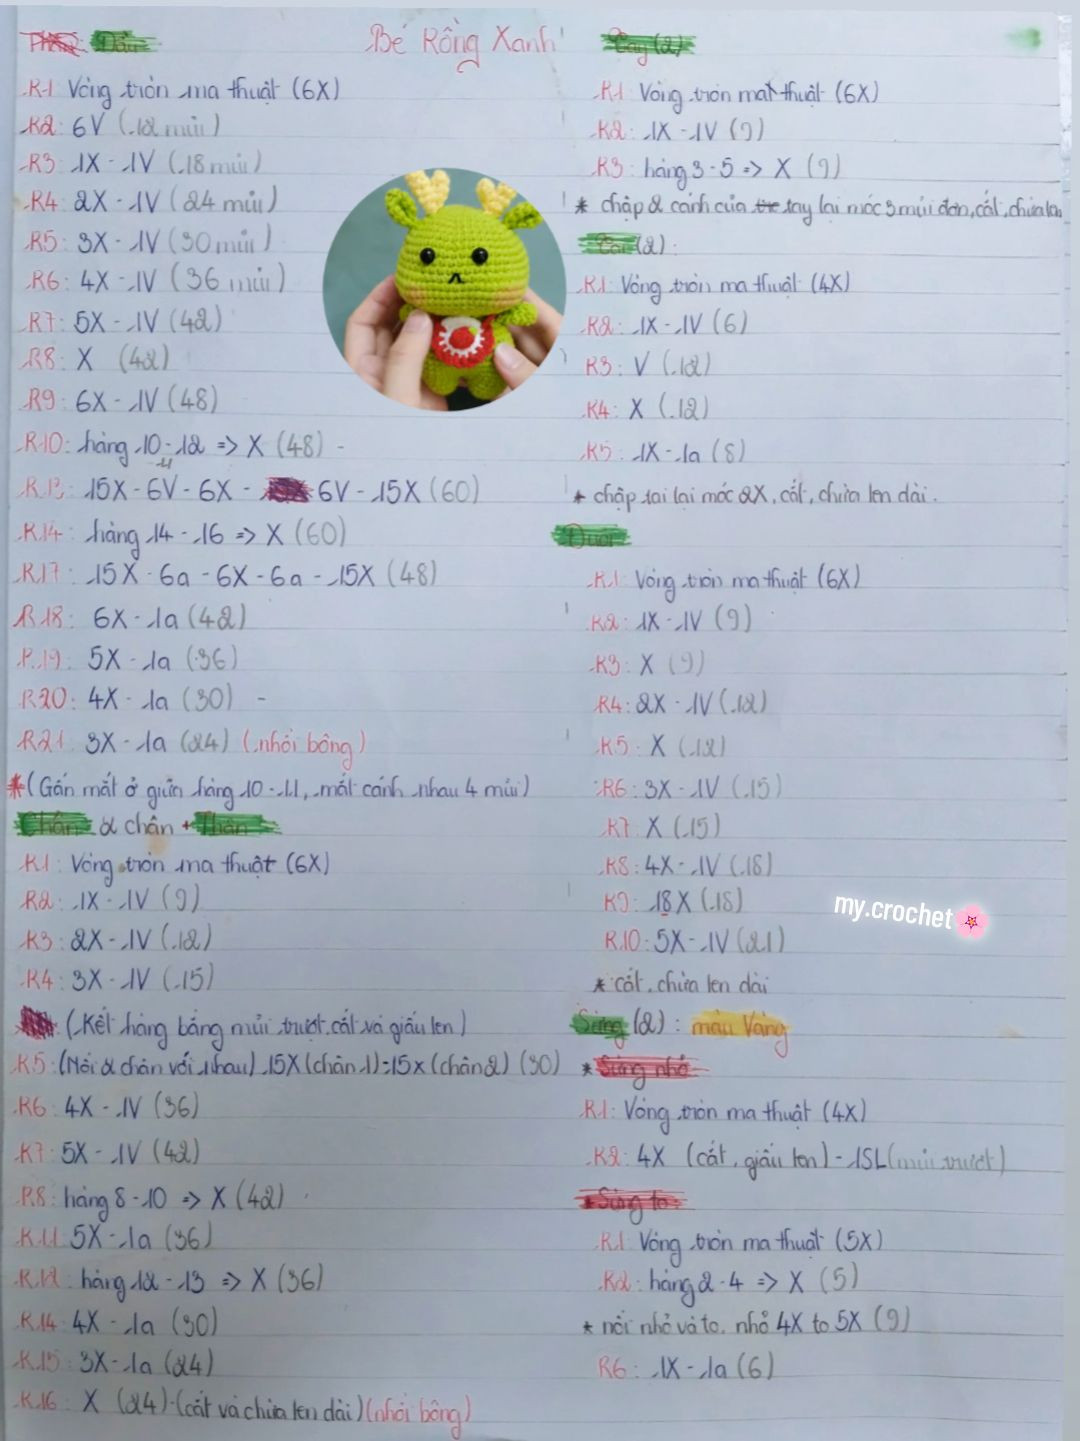 Đầu
Bé Rồng Xanh
R1: Vòng tròn ma thuật (6X)
R2: 6V (12 mũi)
R3: 1X - 1V (18 mũi)
R4: 2X - 1V (24 mũi)
R5: 3X - 1V (30 mũi)
R6: 4X - 1V (36 mũi)
R7: 5X - 1V (42)
R8: X (42)
R9: 6X - 1V (48)
R10: hàng 10 - 12 => X (48) -
R13: 15X - 6V - 6X - 6V - 15X (60)
R14: hàng 14 - 16 => X (60)
R17: 15X - 6a - 6X - 6a - 15X (48)
R18: 6X - 1a (42)
R19: 5X - 1a (36)
R20: 4X - 1a (30) -
R21: 3X - 1a (24) (nhồi bông)
* (Gắn mắt ở giữa hàng 10 - 11, mắt cánh nhau 4 mũi)
Chân 2 chân + Thân
R1: Vòng tròn ma thuật (6X)
R2: 1X - 1V (9)
R3: 2X - 1V (12)
R4: 3X - 1V (15)
(Kết hàng bằng mũi trượt, cắt và giấu len)
R5: (Nối 2 chân với nhau) 15X (chân 1) - 15X (chân 2) (30)
R6: 4X - 1V (36)
R7: 5X - 1V (42)
R8: hàng 8 - 10 => X (42)
R11: 5X - 1a (36)
R12: hàng 12 - 13 => X (36)
R14: 4X - 1a (30)
R15: 3X - 1a (24)
R16: X (24) - (cắt và chừa len dài) (nhồi bông)
Tay (2)
R1: Vòng tròn mat thuật (6X)
R2: 1X - 1V (9)
R3: hàng 3 - 5 => X (9)
* chập 2 cánh của tay lại móc 3 mũi đơn, cắt, chừa len
Tai (2):
R1: Vòng tròn ma thuật (4X)
R2: 1X - 1V (6)
R3: V (12)
R4: X (12)
R5: 1X - 1a (8)
* chập tai lại móc 2X, cắt, chừa len dài.
Đuôi
R1: Vòng tròn ma thuật (6X)
R2: 1X - 1V (9)
R3: X (9)
R4: 2X - 1V (12)
R5: X (12)
R6: 3X - 1V (15)
R7: X (15)
R8: 4X - 1V (18)
R9: 18X (18)
R10: 5X - 1V (21)
* cắt, chừa len dài
my.crochet
Sừng (2): màu Vàng
* Sừng nhỏ
R1: Vòng tròn ma thuật (4X)
R2: 4X (cắt, giấu len) - 1SL (mũi trượt)
* Sừng to
R1: Vòng tròn ma thuật (5X)
R2: hàng 2 - 4 => X (5)
* nối nhỏ và to, nhỏ 4X to 5X (9)
R6: 1X - 1a (6)